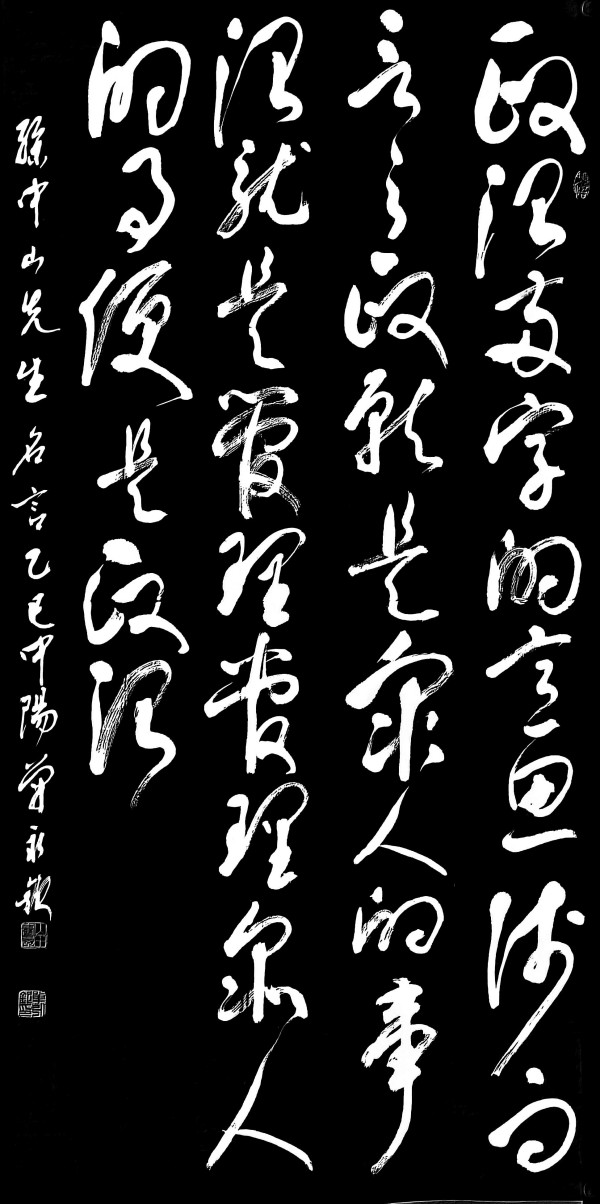 政治两字的意思浅而
言之政就是众人的事
治就是管理管理众人
的事便是政治
孙中山先生名言乙巳中阳叶永钦